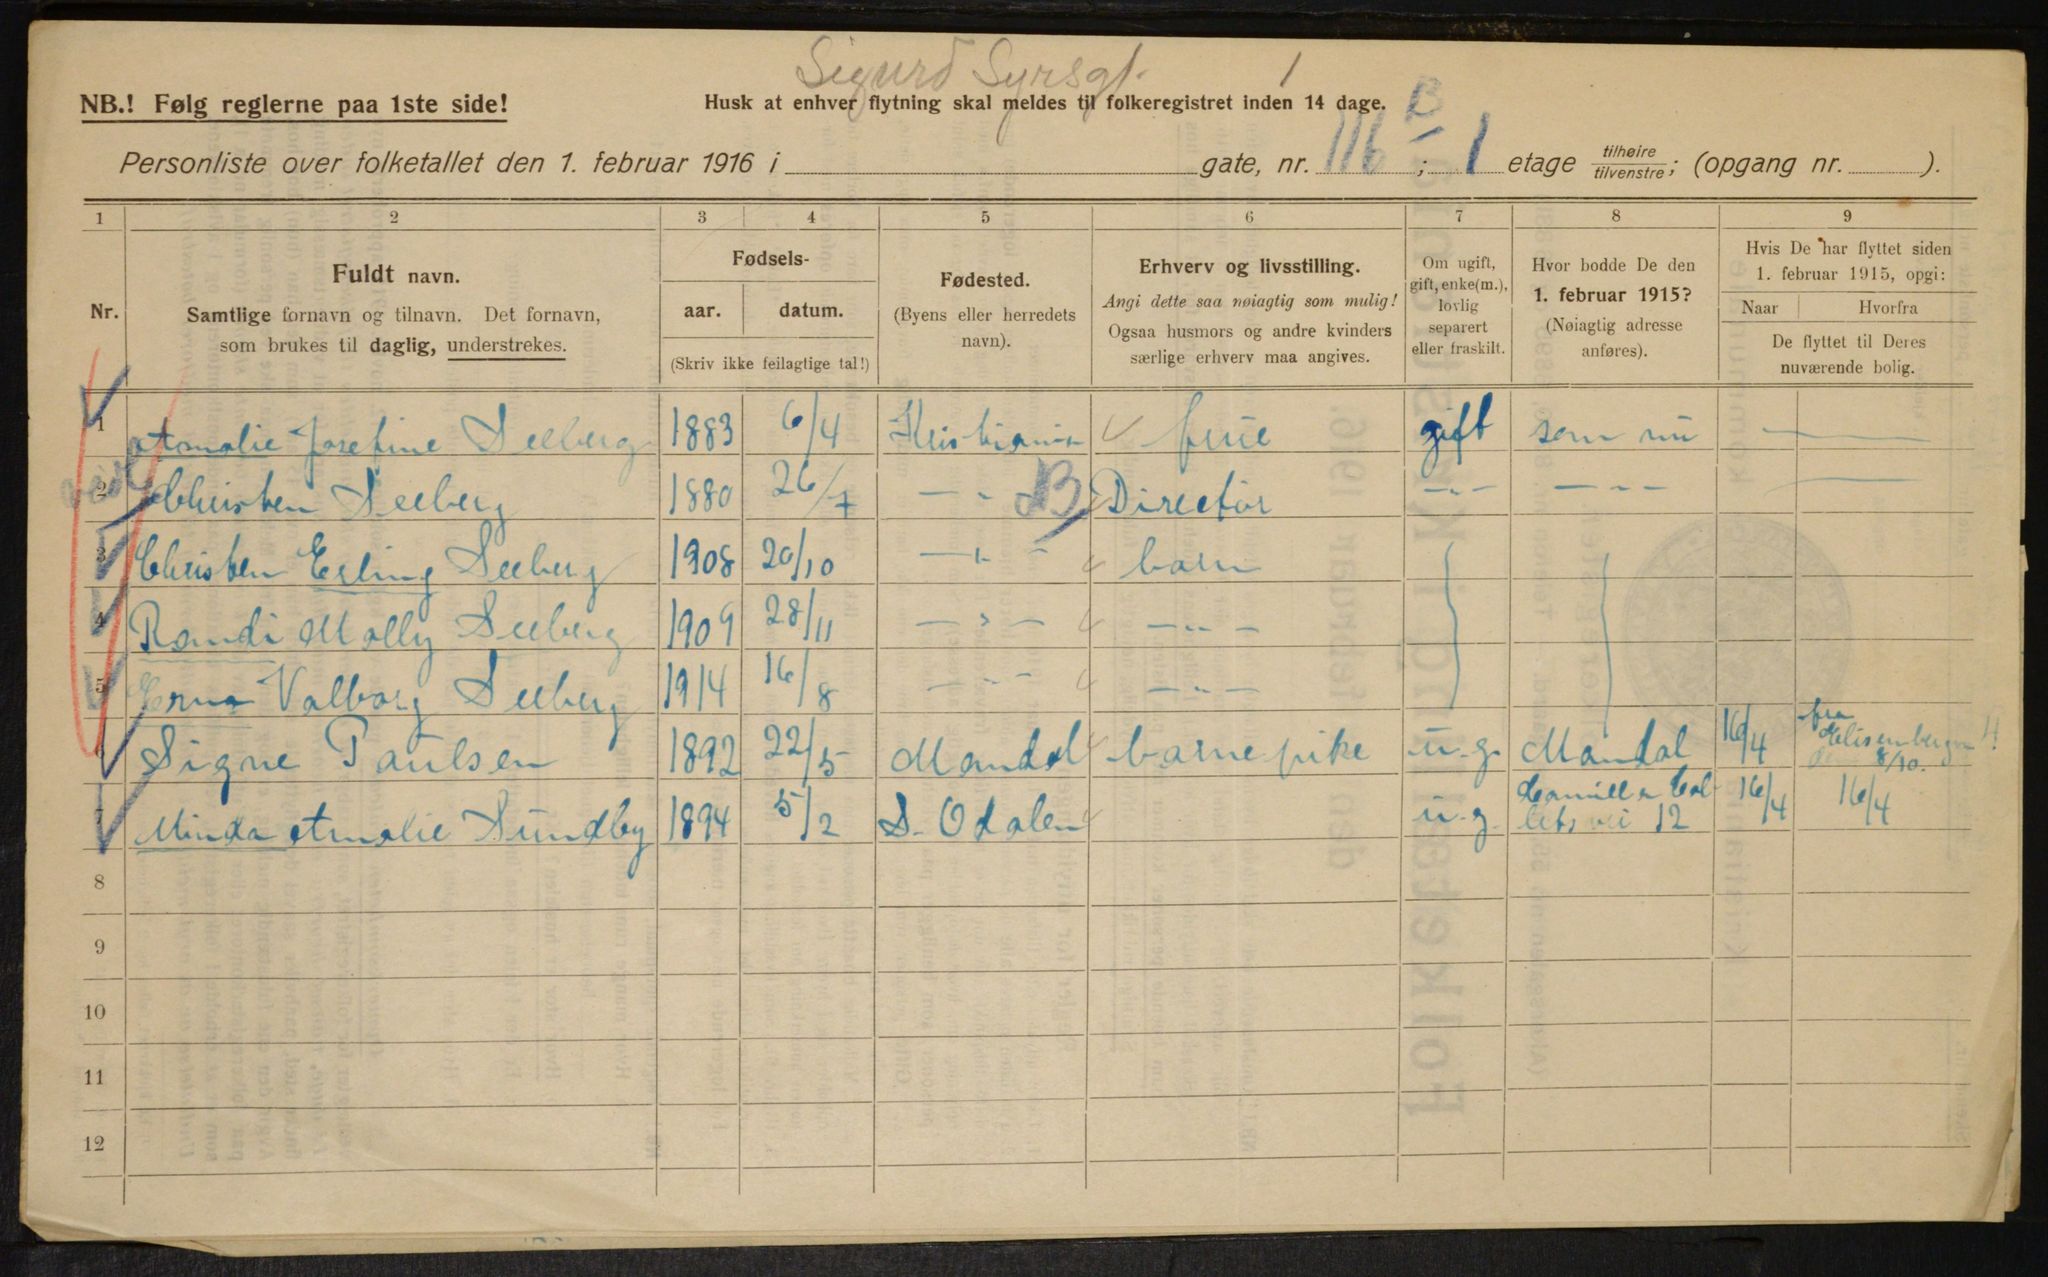 Sigurd Syrsgt. 1
NB.! Følg reglerne paa 1ste side!
Husk at enhver flytning skal meldes til folkeregistret inden 14 dage.
Personliste over folketallet den 1. februar 1916 i gate, nr. 116 B; 1 etage tilhøire tilvenstre; (opgang nr. ).
1 2 3 4 5 6 7 8 9
Nr.
Fuldt navn.
Samtlige fornavn og tilnavn. Det fornavn,
som brukes til daglig, understrekes.
Fødsels-
aar. datum.
(Skriv ikke feilagtige tal!)
Fødested.
(Byens eller herredets
navn).
Erhverv og livsstilling.
Angi dette saa nøiagtig som mulig!
Ogsaa husmors og andre kvinders
særlige erhverv maa angives.
Om ugift,
gift, enke(m.),
lovlig
separert
eller fraskilt.
Hvor bodde De den
1. februar 1915?
(Nøiagtig adresse
anføres).
Hvis De har flyttet siden
1. februar 1915, opgi:
Naar Hvorfra
De flyttet til Deres
nuværende bolig.
1 Amalie Josefine Seeberg 1883 6/4 Kristiania frue gift som nu —
2 Christen Seeberg 1880 26/7 — " B Director — " — — " — —
3 Christen Erling Seeberg 1908 20/10 — " — barn
4 Randi Molly Seeberg 1909 28/11 — " — — " —
5 Erna Valborg Seeberg 1914 16/8 — " — — " —
6 Signe Paulsen 1892 22/5 Mandal barnepike u.g. Mandal 16/4 fra 8/10.
7 Minda Amalie Sundby 1894 5/2 S. Odalen u.g. Camilla Collets vei 12 16/4 16/4
8
9
10
11
12